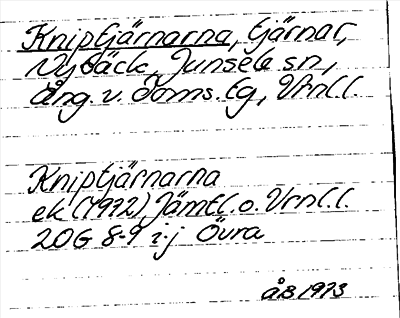 Kniptjärnarna, tjärnar,
Nybäck, Junsele sn,
Ång. v. Doms. tg, Vrnl.l.
Kniptjärnarna
ek (1972) Jämtl. o. Vrnl.l.
20G 8-9 i-j Övra
ÅB 1973